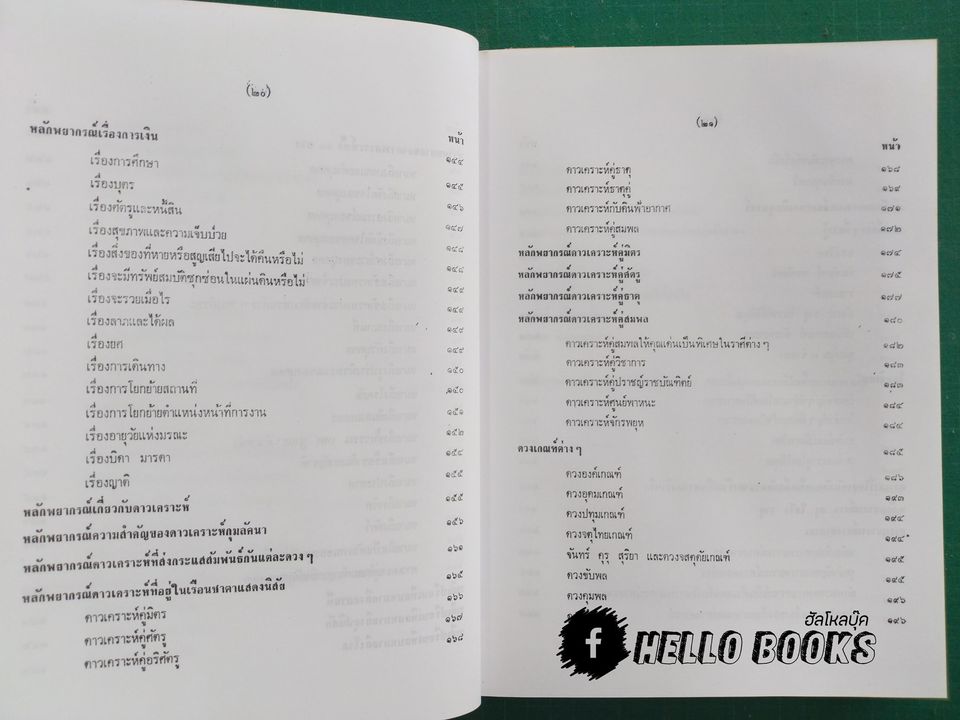 (๒๐)
หน้า
หลักพยากรณ์เรื่องการเงิน ๑๔๔
เรื่องการศึกษา ๑๔๕
เรื่องบุตร ๑๔๖
เรื่องศัตรูและหนี้สิน ๑๔๗
เรื่องสุขภาพและความเจ็บป่วย ๑๔๘
เรื่องสิ่งของที่หายหรือสูญเสียไปจะได้คืนหรือไม่ ๑๔๘
เรื่องจะมีทรัพย์สมบัติซุกซ่อนในแผ่นดินหรือไม่ ๑๔๙
เรื่องจะรวยเมื่อไร ๑๔๙
เรื่องลาภและได้ผล ๑๔๙
เรื่องยศ ๑๔๙
เรื่องการเดินทาง ๑๕๐
เรื่องการโยกย้ายสถานที่ ๑๕๐
เรื่องการโยกย้ายตำแหน่งหน้าที่การงาน ๑๕๑
เรื่องอายุวัยแห่งมรณะ ๑๕๒
เรื่องบิดา มารดา ๑๕๔
เรื่องญาติ ๑๕๕
หลักพยากรณ์เกี่ยวกับดาวเคราะห์ ๑๕๕
หลักพยากรณ์ความสำคัญของดาวเคราะห์กุมลัคนา ๑๕๖
หลักพยากรณ์ดาวเคราะห์ที่ส่งกระแสสัมพันธ์กันแต่ละดวง ๆ ๑๖๑
หลักพยากรณ์ดาวเคราะห์ที่อยู่ในเรือนชาตาแสดงนิสัย ๑๖๕
ดาวเคราะห์คู่มิตร ๑๖๖
ดาวเคราะห์คู่ศัตรู ๑๖๗
ดาวเคราะห์คู่อริศัตรู ๑๖๘
(๒๑)
หน้า
ดาวเคราะห์คู่ธาตุ ๑๖๘
ดาวเคราะห์ธาตุคู่ ๑๖๙
ดาวเคราะห์กับดินฟ้าอากาศ ๑๗๑
ดาวเคราะห์คู่สมพล ๑๗๒
หลักพยากรณ์ดาวเคราะห์คู่มิตร ๑๗๔
หลักพยากรณ์ดาวเคราะห์คู่ศัตรู ๑๗๕
หลักพยากรณ์ดาวเคราะห์คู่ธาตุ ๑๗๗
หลักพยากรณ์ดาวเคราะห์คู่สมพล ๑๘๐
ดาวเคราะห์คู่สมพลให้คุณเด่นเป็นพิเศษในราศีต่าง ๆ ๑๘๒
ดาวเคราะห์คู่วิชาการ ๑๘๓
ดาวเคราะห์คู่ปราชญ์ราชบัณฑิตย์ ๑๘๓
ดาวเคราะห์ศูนย์พาหนะ ๑๘๔
ดาวเคราะห์จักรพยุห ๑๘๔
ดวงเกณฑ์ต่าง ๆ ๑๘๕
ดวงองค์เกณฑ์ ๑๘๖
ดวงอุดมเกณฑ์ ๑๙๓
ดวงปทุมเกณฑ์ ๑๙๔
ดวงจตุไทยเกณฑ์ ๑๙๔
จันทร์ คุรุ สุริยา และดวงจสตุดัยเกณฑ์ ๑๙๕
ดวงชับพล ๑๙๕
ดวงคุมพล ๑๙๖
๑๙๖
ฮัลโหลบุ๊ค
f HELLO BOOKS